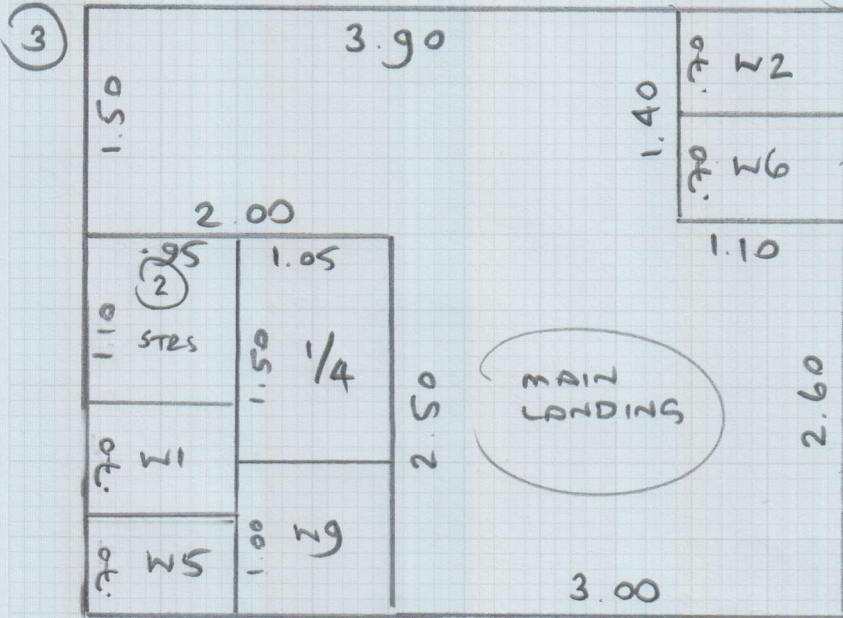 3
3.90
1.50
1.40
.70 W2
.70 W6
1.10
2.00
.95
2
1.10
STRS
1.05
1.50
1/4
2.50
MAIN
LANDING
2.60
.70 W1
.70 W5
1.00
W9
3.00